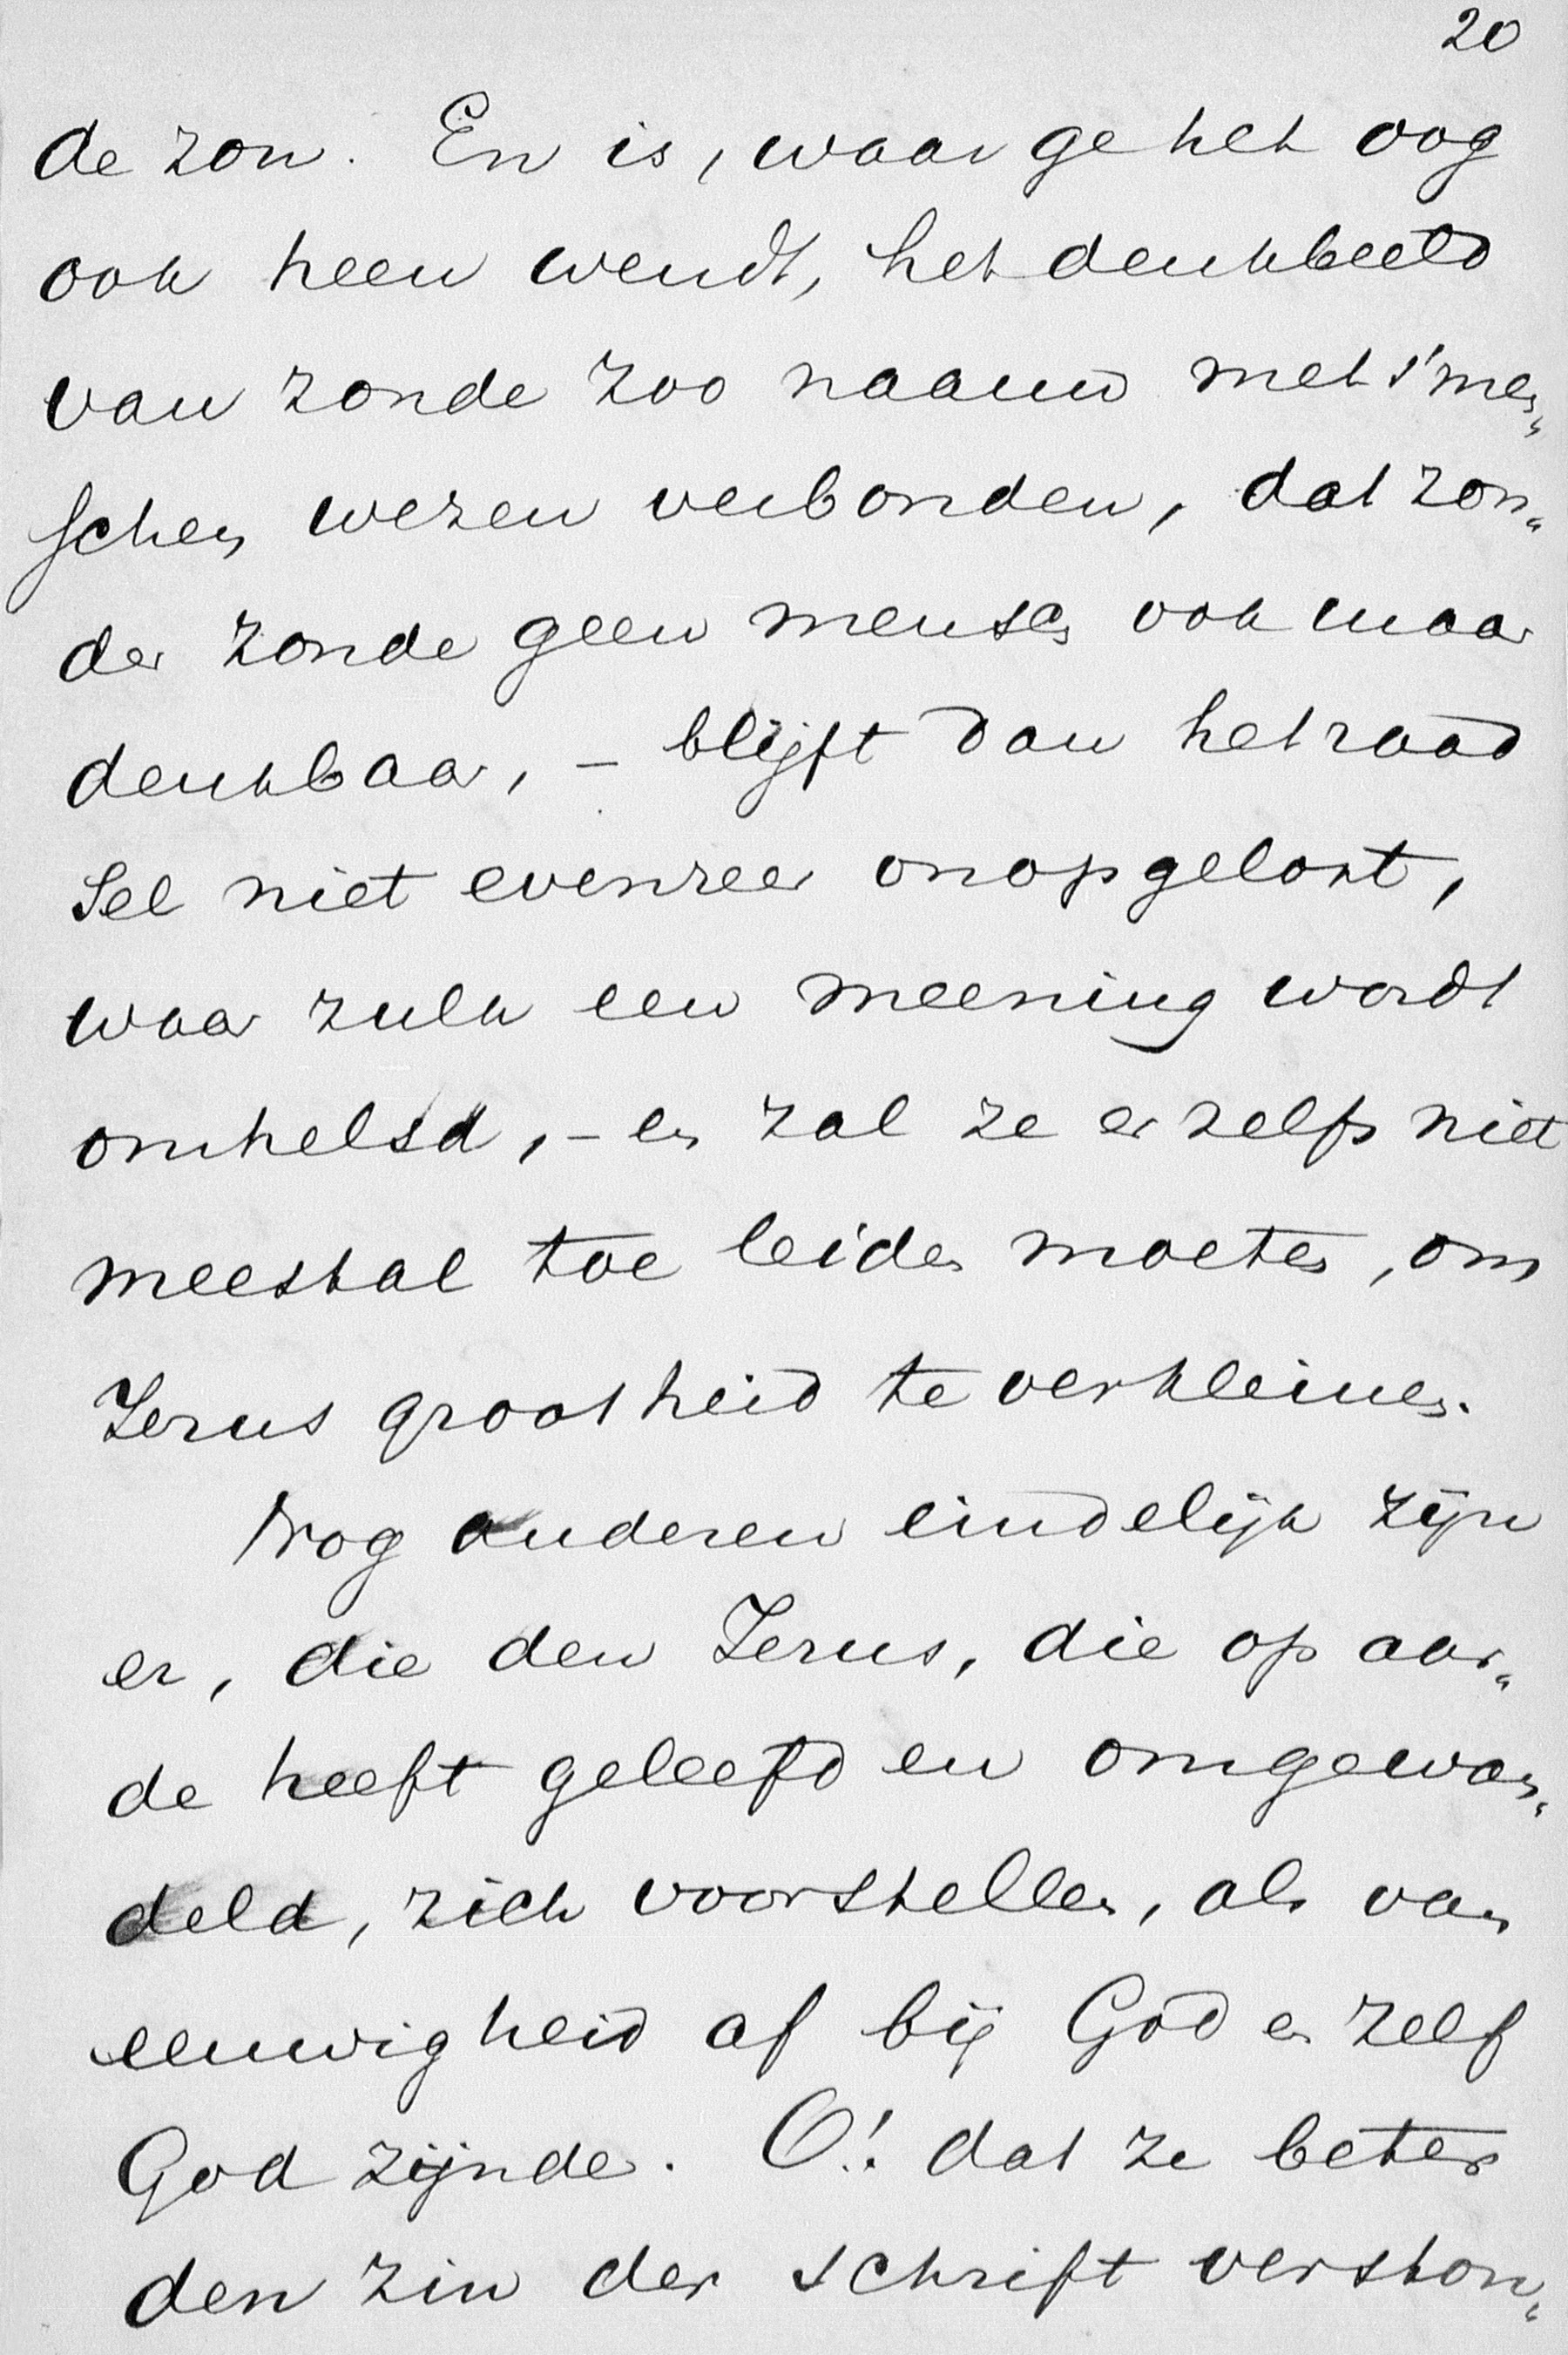 20
de zon. En is, waar ge het oog
ook heen wendt, het denkbeeld
van zonde zoo naauw met s'men„
schen wezen verbonden, dat zon„
der zonde geen mensch ook maar
denkbaar, – blijft dan het raad
sel niet evenzeer onopgelost,
waar zulk een meening wordt
omhelsd, – en zal ze er zelfs niet
meestal toe leiden moeten, om
Jezus grootheid te verkleinen.
Nog anderen eindelijk zijn
er, die den Jezus, die op aar„
de heeft geleefd en omgewan„
deld, zich voorstellen, als van
eeuwigheid af bij God en zelf
God zijnde. O! dat ze beter
den zin der schrift verston„